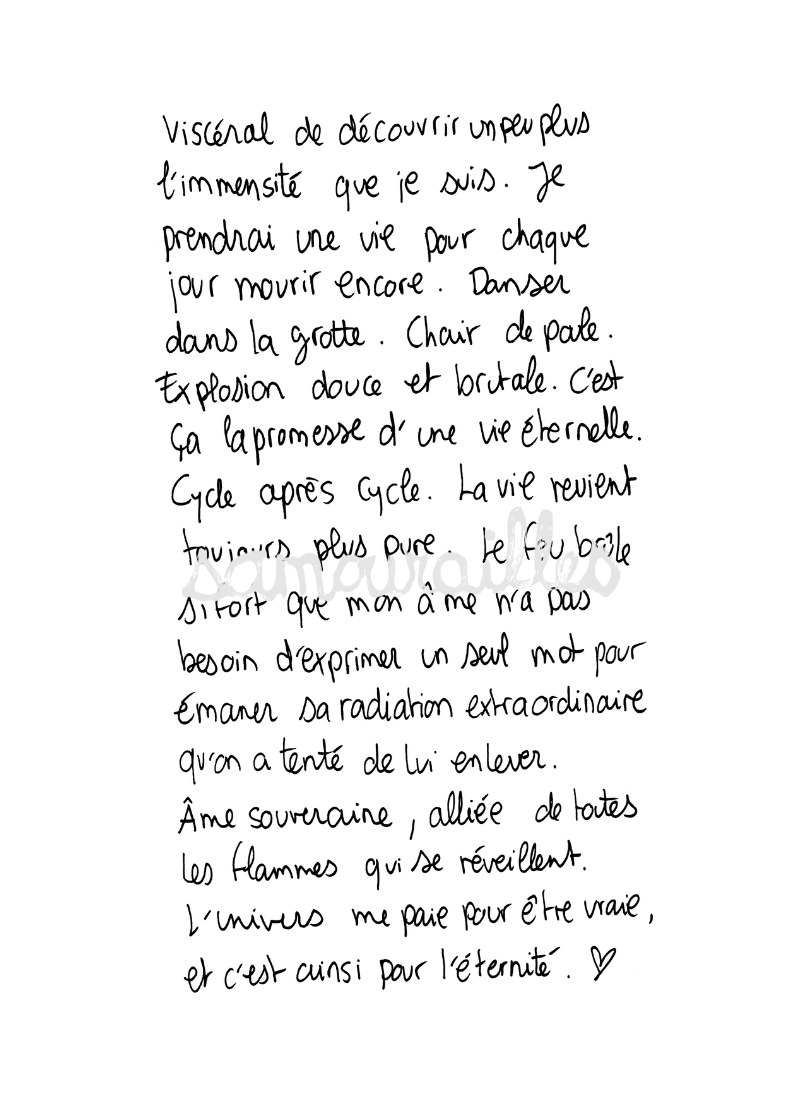 Viscéral de découvrir un peu plus
l'immensité que je suis. Je
prendrai une vie pour chaque
jour mourir encore. Danser
dans la grotte. Chair de pale.
Explosion douce et brutale. C'est
ça la promesse d'une vie éternelle.
Cycle après cycle. La vie revient
toujours plus pure. Le feu brûle
si fort que mon âme n'a pas
besoin d'exprimer un seul mot pour
émaner sa radiation extraordinaire
qu'on a tenté de lui enlever.
Âme souveraine, alliée de toutes
les flammes qui se réveillent.
L'univers me paie pour être vraie,
et c'est ainsi pour l'éternité. ♡
samourailles